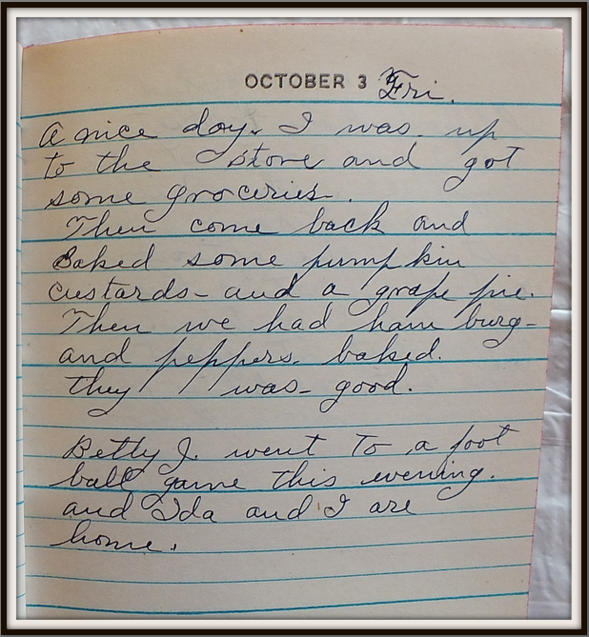 OCTOBER 3 Fri.
A nice day. I was up
to the store and got
some groceries.
Then come back and
Baked some pumpkin
custards - and a grape pie.
Then we had ham burg-
and peppers baked.
they was - good.
Betty J. went To a foot
ball game this evening.
and Ida and I are
home.